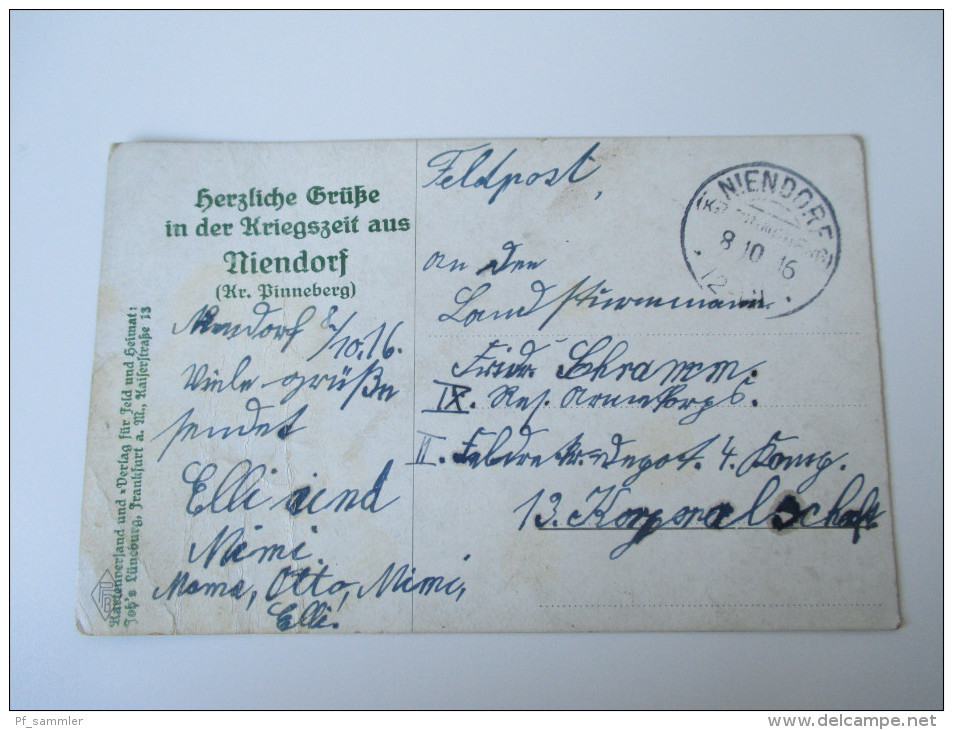 Herzliche Grüße
in der Kriegszeit aus
Niendorf
(Kr. Pinneberg)
Niendorf 8/10.16.
Viele grüße
sendet
Elli und
Mimi.
Mama, Otto, Mimi,
Elli.
Kartenversand und =Verlag für Feld und Heimat:
Joh's Lüneburg, Frankfurt a. M., Kaiserstraße 13
Feldpost,
An den
Landsturmmann
Fridr. Schramm.
IX. Res. Armekorps.
II. Feldrekr. Depot. 4. Komp.
13. Korporalschaft
NIENDORF
8 10 16
Pf_sammler
www.delcampe.net